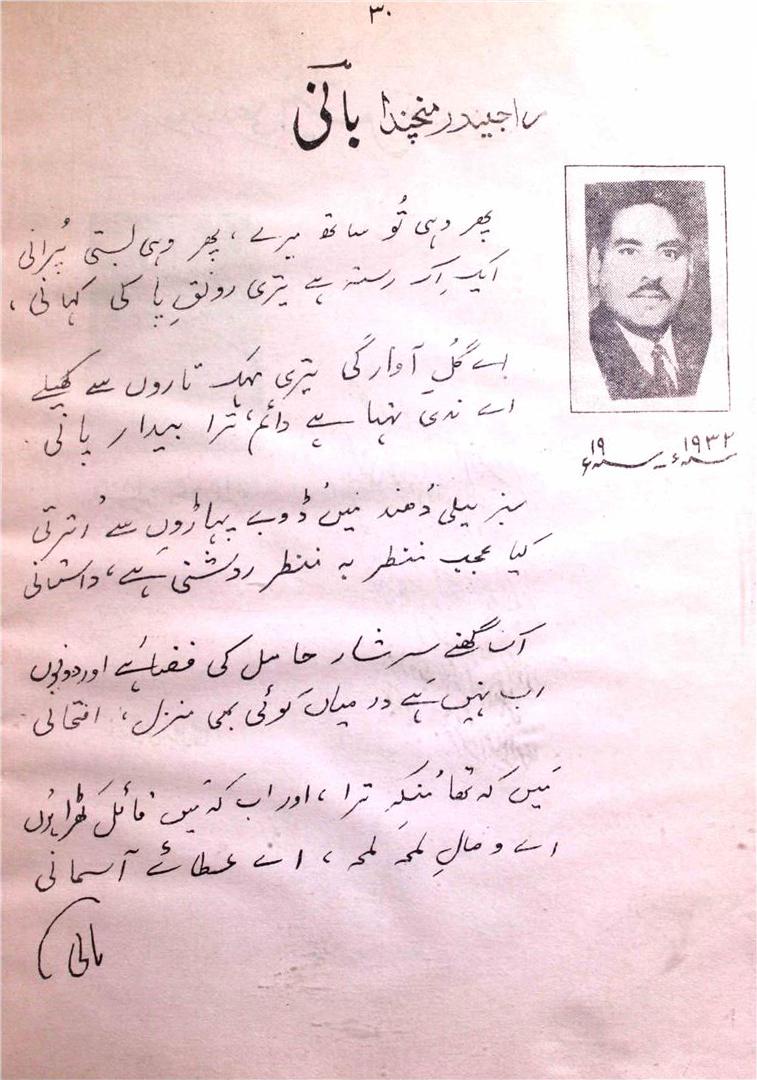 ۳۰
راجیندر منچندا بانی
پھر وہی تُو ساتھ میرے، پھر وہی بستی پُرانی
ایک اِک رستہ ہے تیری رونقِ پا کی کہانی،
اے گُلِ آوارگی تیری مہک تاروں سے کھیلے
اے ندی بہتا رہے دائم، ترا بیدار پانی
سبز نیلی دُھند میں ڈوبے پہاڑوں سے اُترتی
کیا عجب منظر بہ منظر روشنی ہے، داستانی
اک گھنے سرشار حاصل کی فضا ہے اور دونوں
اب نہیں ہے درمیاں کوئی بھی منزل، امتحانی
مَیں کہ تھا مُنکِر ترا، اور اب کہ مَیں قائل کھڑا ہُوں
اے وصالِ لمحہ لمحہ، اے عطائے آسمانی
بانی
۱۹۳۲ء ۔ سنہ ۱۹ء